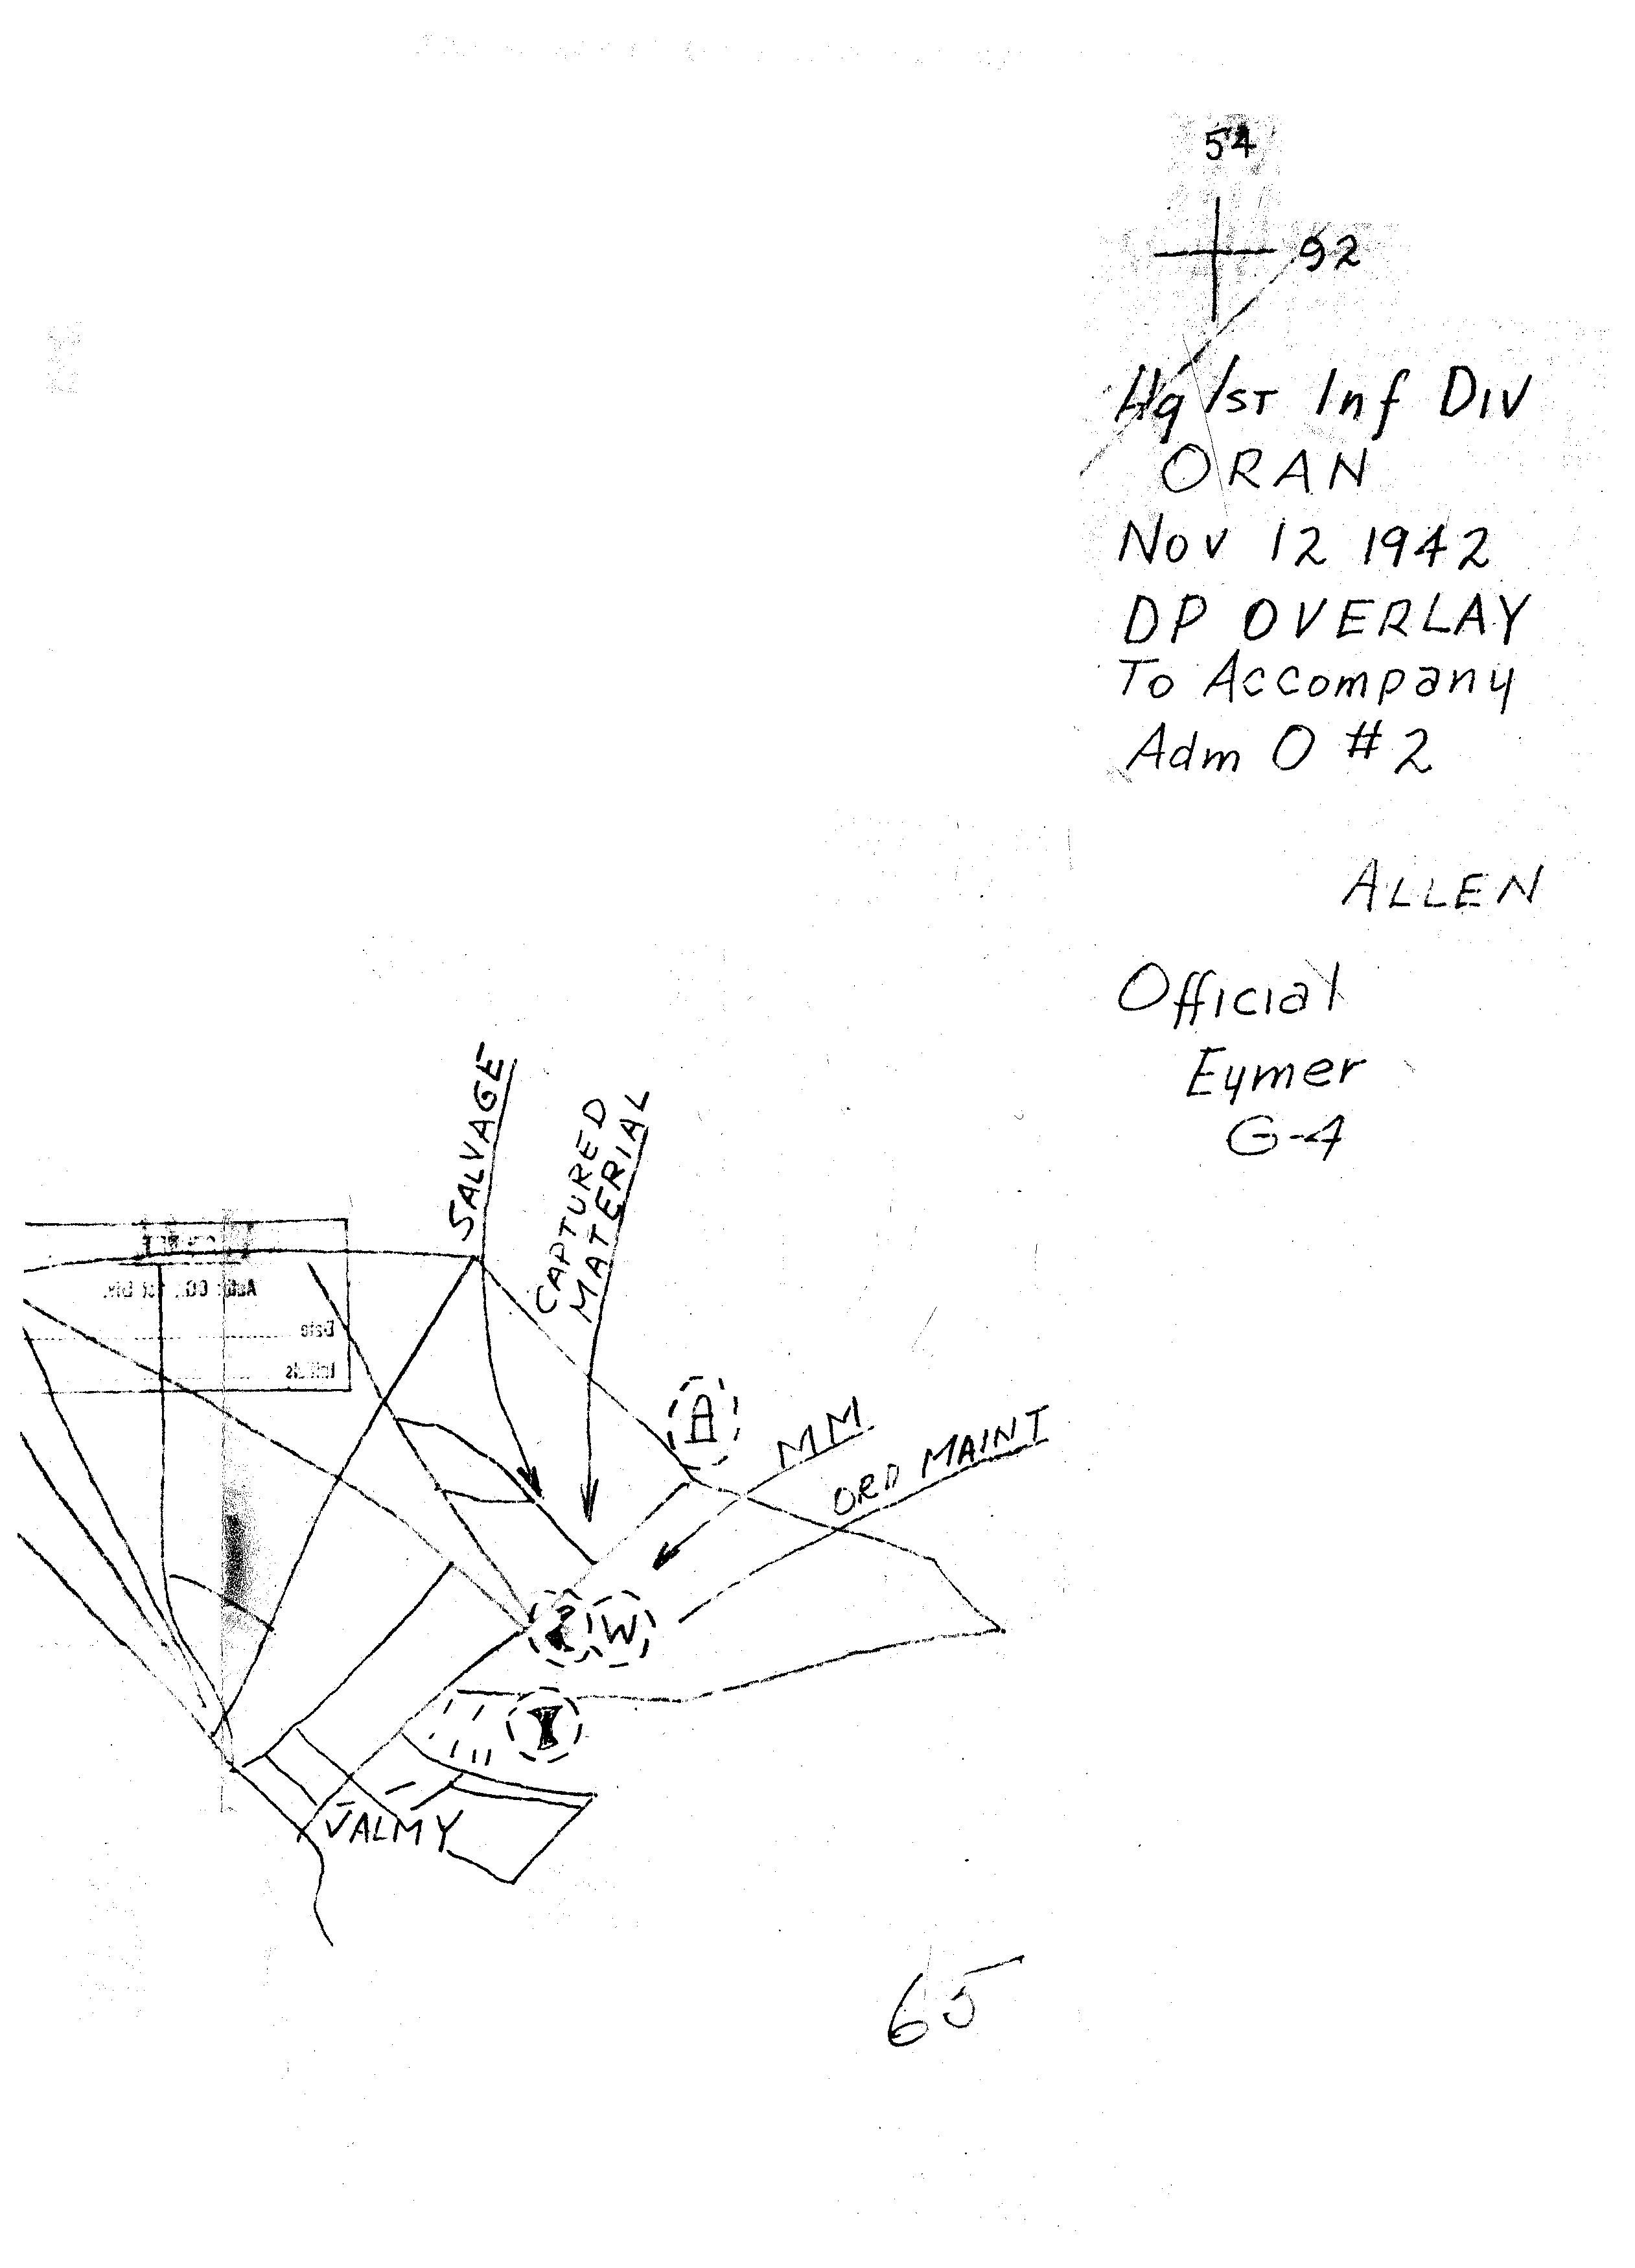 54
92
Hq 1ST Inf DIV
ORAN
Nov 12 1942
DP OVERLAY
To Accompany
Adm O #2
ALLEN
Official
Eymer
G-4
SALVAGE
CAPTURED
MATERIAL
MM
ORD MAINT
W
Date
VALMY
65